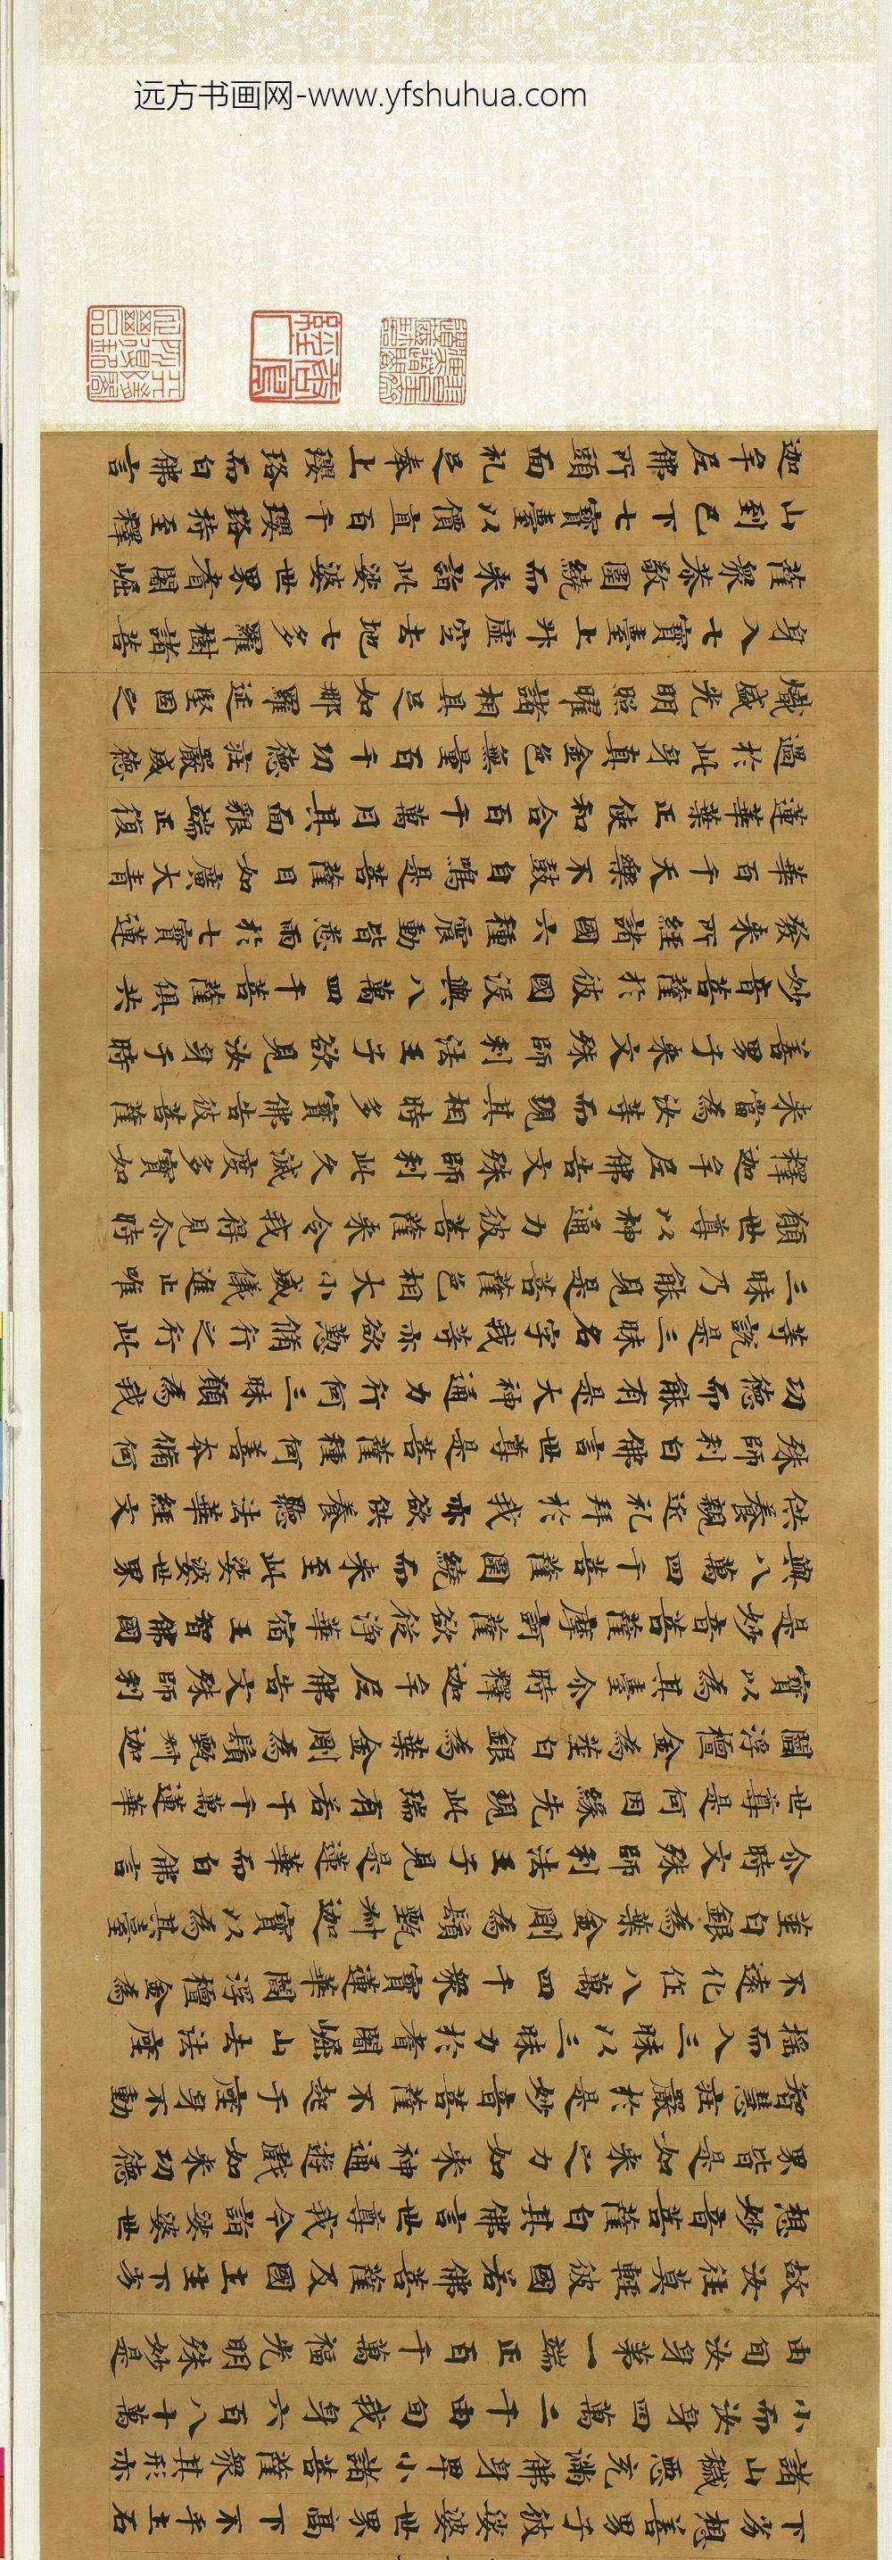 远方书画网-www.yfshuhua.com
下劣想善男子彼娑婆世界高下不平土石
諸山穢惡充滿佛身卑小諸菩薩眾其形亦
小而汝身四萬二千由旬我身六百八十萬
由旬汝身第一端正百千萬福光明殊妙是
故汝往莫輕彼國若佛菩薩及國土生下劣
想妙音菩薩白其佛言世尊我今詣娑婆世
界皆是如来之力如来神通遊戲如来功德
智慧莊嚴於是妙音菩薩不起于座身不動
搖而入三昧以三昧力於耆闍崛山去法座
不遠化作八萬四千眾寶蓮華閻浮檀金為
莖白銀為葉金剛為鬚甄叔迦寶以為其臺
尒時文殊師利法王子見是蓮華而白佛言
世尊是何因緣先現此瑞有若干千萬蓮華
閻浮檀金為莖白銀為葉金剛為鬚甄叔迦
寶以為其臺尒時釋迦牟尼佛告文殊師利
是妙音菩薩摩訶薩欲從淨華宿王智佛國
與八萬四千菩薩圍繞而来至此娑婆世界
供養親近礼拜於我亦欲供養聽法華經文
殊師利白佛言世尊是菩薩種何善本脩何
功德而能有是大神通力行何三昧願為我
等說是三昧名字我等亦欲勤脩行之行此
三昧乃能見是菩薩色相大小威儀進止唯
願世尊以神通力彼菩薩来令我得見尒時
釋迦牟尼佛告文殊師利此久滅度多寶如
来當為汝等而現其相時多寶佛告彼菩薩
善男子来文殊師利法王子欲見汝身于時
妙音菩薩於彼國沒與八萬四千菩薩俱共
發来所經諸國六種震動皆悉雨於七寶蓮
華百千天樂不鼓自鳴是菩薩目如廣大青
蓮華葉正使和合百千萬月其面貌端正復
過於此身真金色無量百千功德莊嚴威德
熾盛光明照曜諸相具足如那羅延堅固之
身入七寶臺上升虛空去地七多羅樹諸菩
薩眾恭敬圍繞而来詣此娑婆世界耆闍崛
山到已下七寶臺以價直百千瓔珞持至釋
迦牟尼佛所頭面礼足奉上瓔珞而白佛言